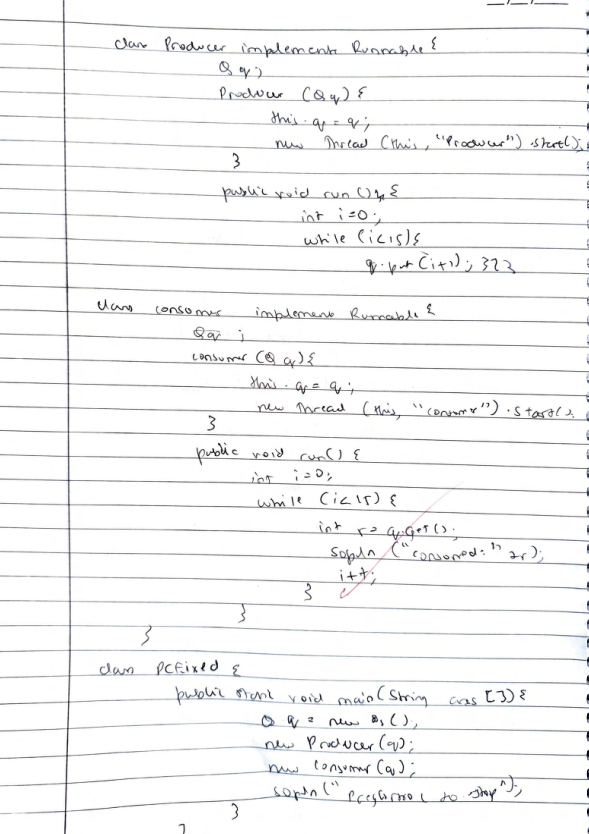 class Producer implements Runnable {
Q q;
Producer (Q q) {
this.q = q;
new Thread (this, "Producer").start();
}
public void run () {
int i=0;
while (i<15){
q.put (i+1); }}}
class consumer implements Runnable {
Q q ;
consumer (Q q){
this.q = q;
new Thread (this, "consumer").start();
}
public void run() {
int i=0;
while (i<15) {
int r= q.get();
sopln ("consumed:" +r);
i++;
}
}
}
class PCFixed {
public static void main(String args []) {
Q q = new Q();
new Producer(q);
new Consumer (q);
sopln (" to stop");
}
}